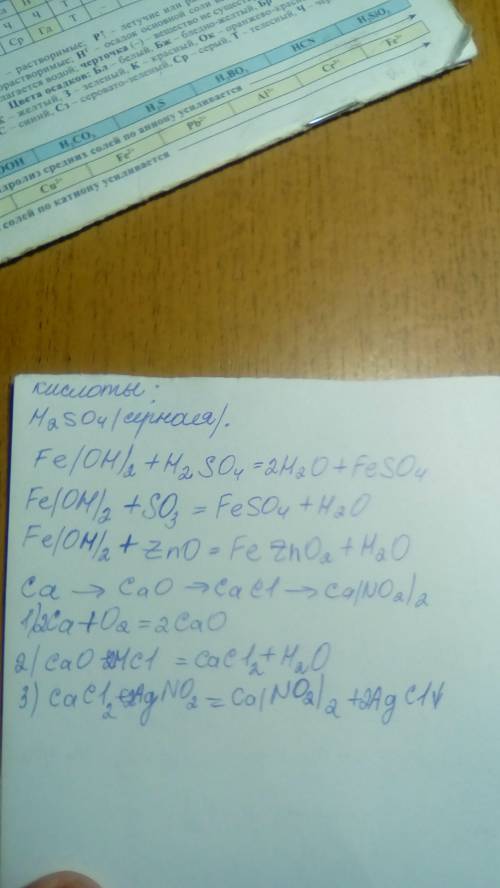 Ч Ч Т
Ср Гл Т –
– растворимые, Р↑ – летучие или
Н↑ – осадок основной соли
черточка (–) – вещество не
Цвета осадков: Бл – белый, Бж – бледно-желтый, Бр
– желтый, З – зеленый, К – красный, Ок – оранжево-красный
С – синий, Сз – серовато-зеленый, Ср – серый, Т – телесный, Ч –
OOH H₂CO₃ H₂S H₃BO₃ HCN H₂SiO₃
средних солей по аниону усиливается
Cu²⁺ Fe²⁺ Pb²⁺ Al³⁺ Cr³⁺ Fe³⁺
солей по катиону усиливается
кислоты:
H₂SO₄ (серная).
Fe(OH)₂ + H₂SO₄ = 2H₂O + FeSO₄
Fe(OH)₂ + SO₃ = FeSO₄ + H₂O
Fe(OH)₂ + ZnO = FeZnO₂ + H₂O
Ca → CaO → CaCl → Ca(NO₂)₂
1) 2Ca + O₂ = 2CaO
2) CaO + 2HCl = CaCl₂ + H₂O
3) CaCl₂ + 2AgNO₂ = Ca(NO₂)₂ + 2AgCl↓